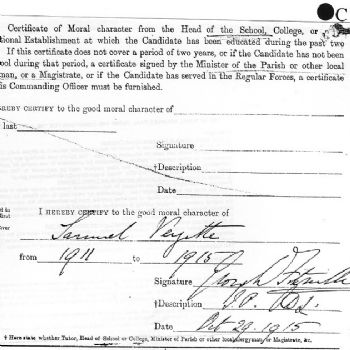 C
Certificate of Moral character from the Head of the School, College, or
tional Establishment at which the Candidate has been educated during the past two
If this certificate does not cover a period of two years, or if the Candidate has not been
ool during that period, a certificate signed by the Minister of the Parish or other local
man, or a Magistrate, or if the Candidate has served in the Regular Forces, a certificate
is Commanding Officer must be furnished.
HEREBY CERTIFY to the good moral character of
last
Signature
†Description
Date
I HEREBY CERTIFY to the good moral character of
Samuel
from 1911 to 1915
Signature Joseph
†Description J.P.
Date Oct 29. 1915
† Here state whether Tutor, Head of School or College, Minister of Parish or other local clergyman, or Magistrate, &c.